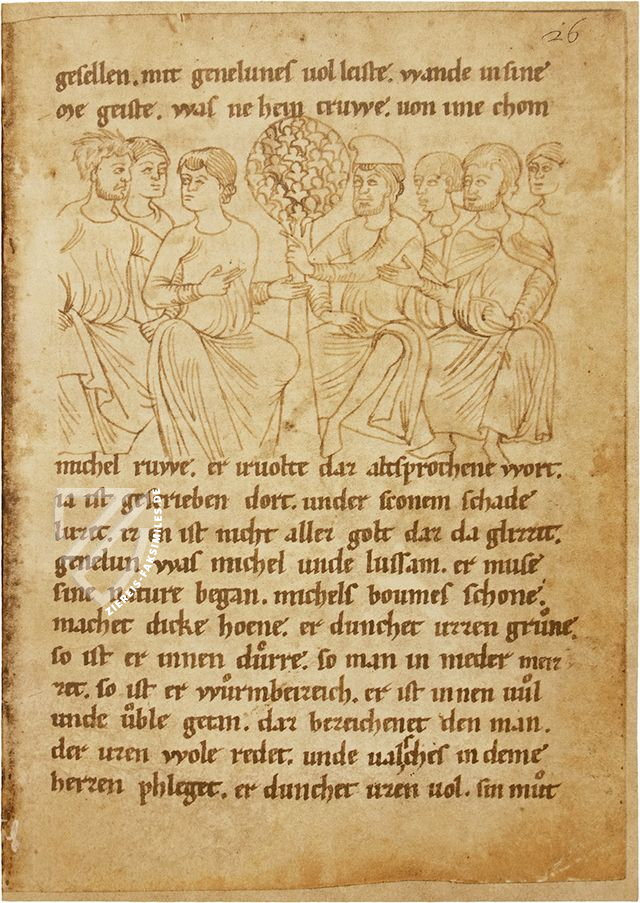 26
gesellen. mit genelunes uolleiste. wande in sine
me geiste. was ne hein truwe. uon ime chom
michel ruwe. er iruolte dar altsprochene wort.
ia ist gescrieben dort. under sconem schade
luzet. ez en ist nicht allez golt dar da glizzit.
genelun. was michel unde lussam. er muse
sine nature began. michels boumes schone.
machet dicke hoene. er dunchet uzzen grůne.
so ist er innen důrre. so man in nieder meiz
zet. so ist er wůrmbeizeich. er ist innen uůl
unde ůble getan. daz bezeichenet den man.
der uzen wole redet. unde ualsches in deme
herzen phleget. er dunchet uzen uol. sin můt
ZIEREIS-FAKSIMILES.DE